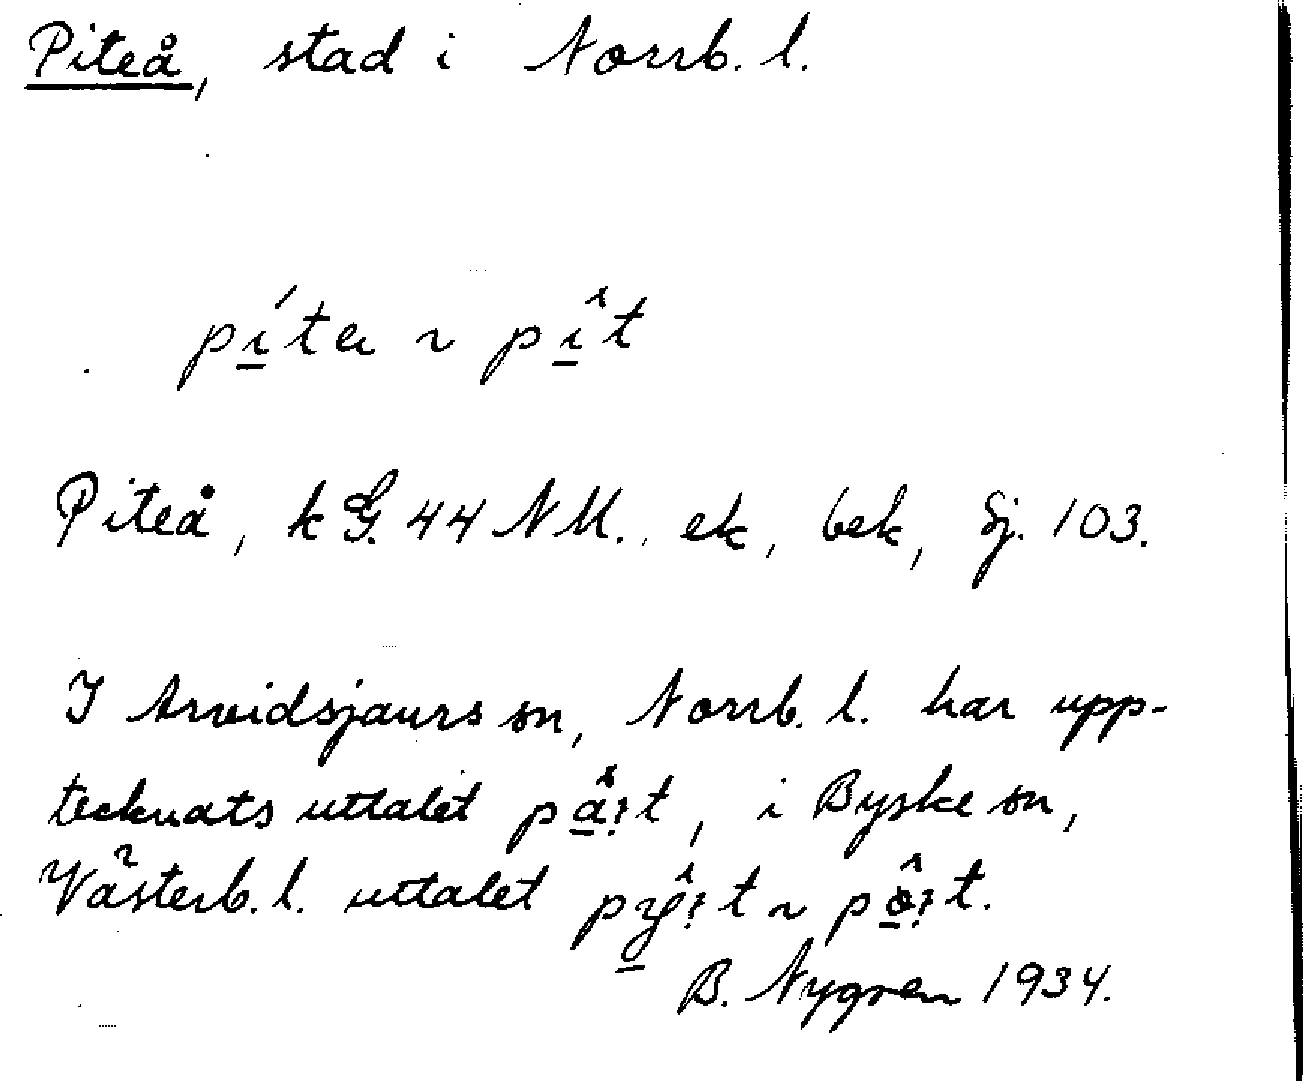 Piteå, stad i Norrb. l.
pı̲́ta ~ pı̲̂t
Piteå, k G. 44 NM., ek, bek, Sj. 103.
I Arvidsjaurs sn, Norrb. l. har upp-
tecknats uttalet , i Byske sn,
Västerb. l. uttalet
B. Nygren 1934.